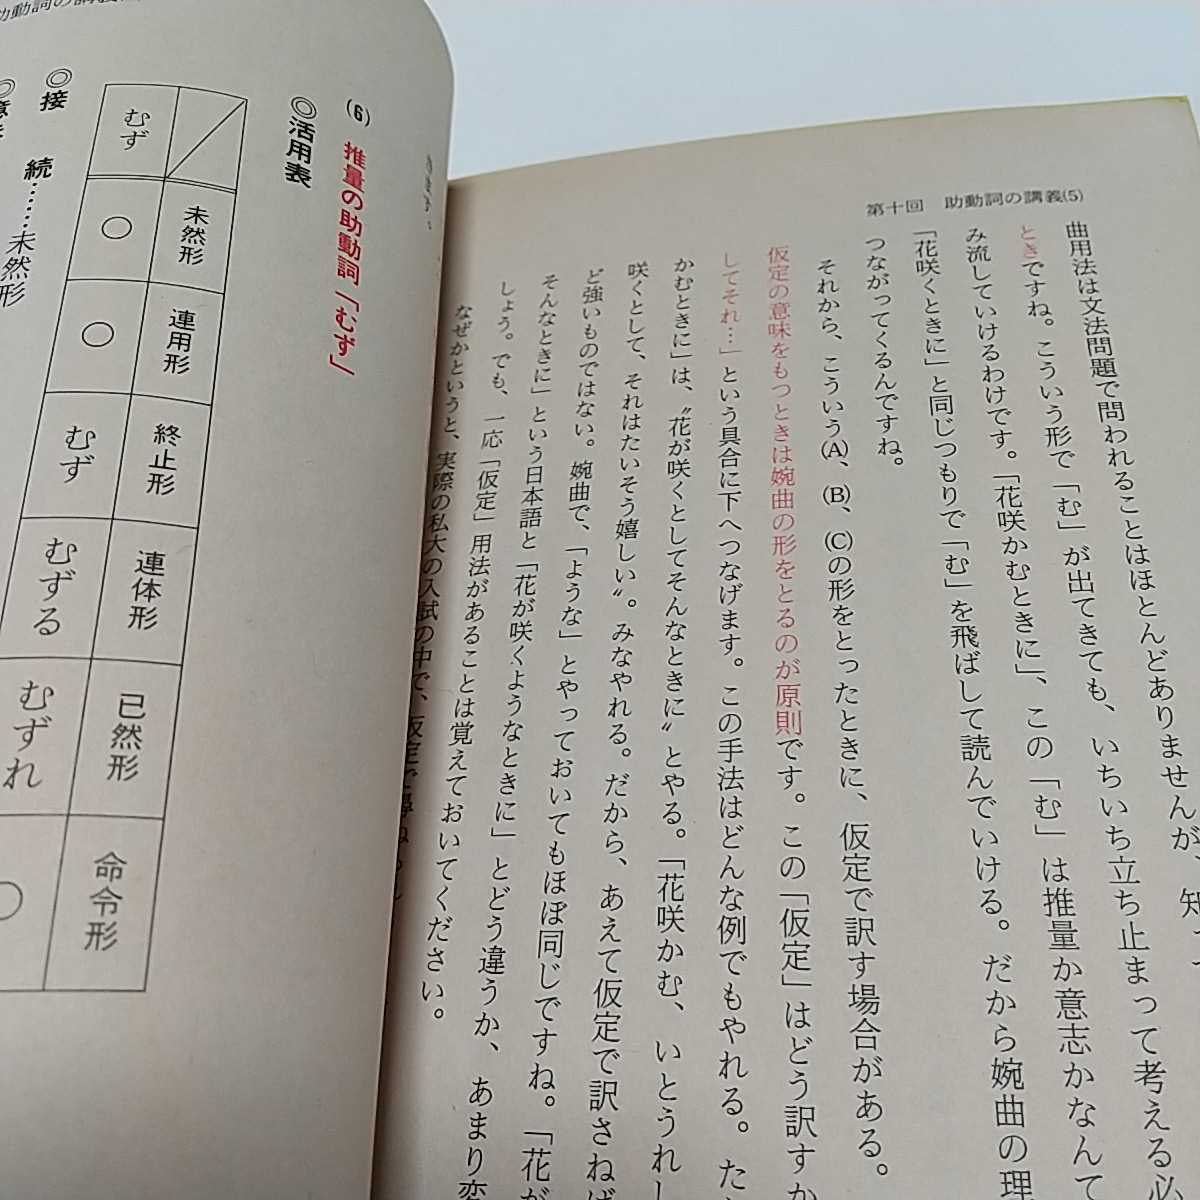 第十回　助動詞の講義(5)
曲用法は文法問題で問われることはほとんどありませんが、知っ
ときですね。こういう形で「む」が出てきても、いちいち立ち止まって考える必
み流していけるわけです。「花咲かむときに」、この「む」は推量か意志かなんて
「花咲くときに」と同じつもりで「む」を飛ばして読んでいける。だから婉曲の理
つながってくるんですね。
それから、こういう(A)、(B)、(C)の形をとったときに、仮定で訳す場合がある。
仮定の意味をもつときは婉曲の形をとるのが原則です。この「仮定」はどう訳すか
してそれ…」という具合に下へつなげます。この手法はどんな例でもやれる。た
かむときに」は、〝花が咲くとしてそんなときに〟とやる。「花咲かむ、いとうれし
咲くとして、それはたいそう嬉しい〟。みなやれる。だから、あえて仮定で訳さねば
ど強いものではない。婉曲で、「ような」とやっておいてもほぼ同じですね。「花が
そんなときに」という日本語と「花が咲くようなときに」とどう違うか、あまり変
しょう。でも、一応「仮定」用法があることは覚えておいてください。
なぜかというと、実際の私大の入試の中で、仮定で
助動詞の講義
(6) 推量の助動詞「むず」
◎活用表
未然形 連用形 終止形 連体形 已然形 命令形
むず ○ ○ むず むずる むずれ ○
◎接　続……未然形